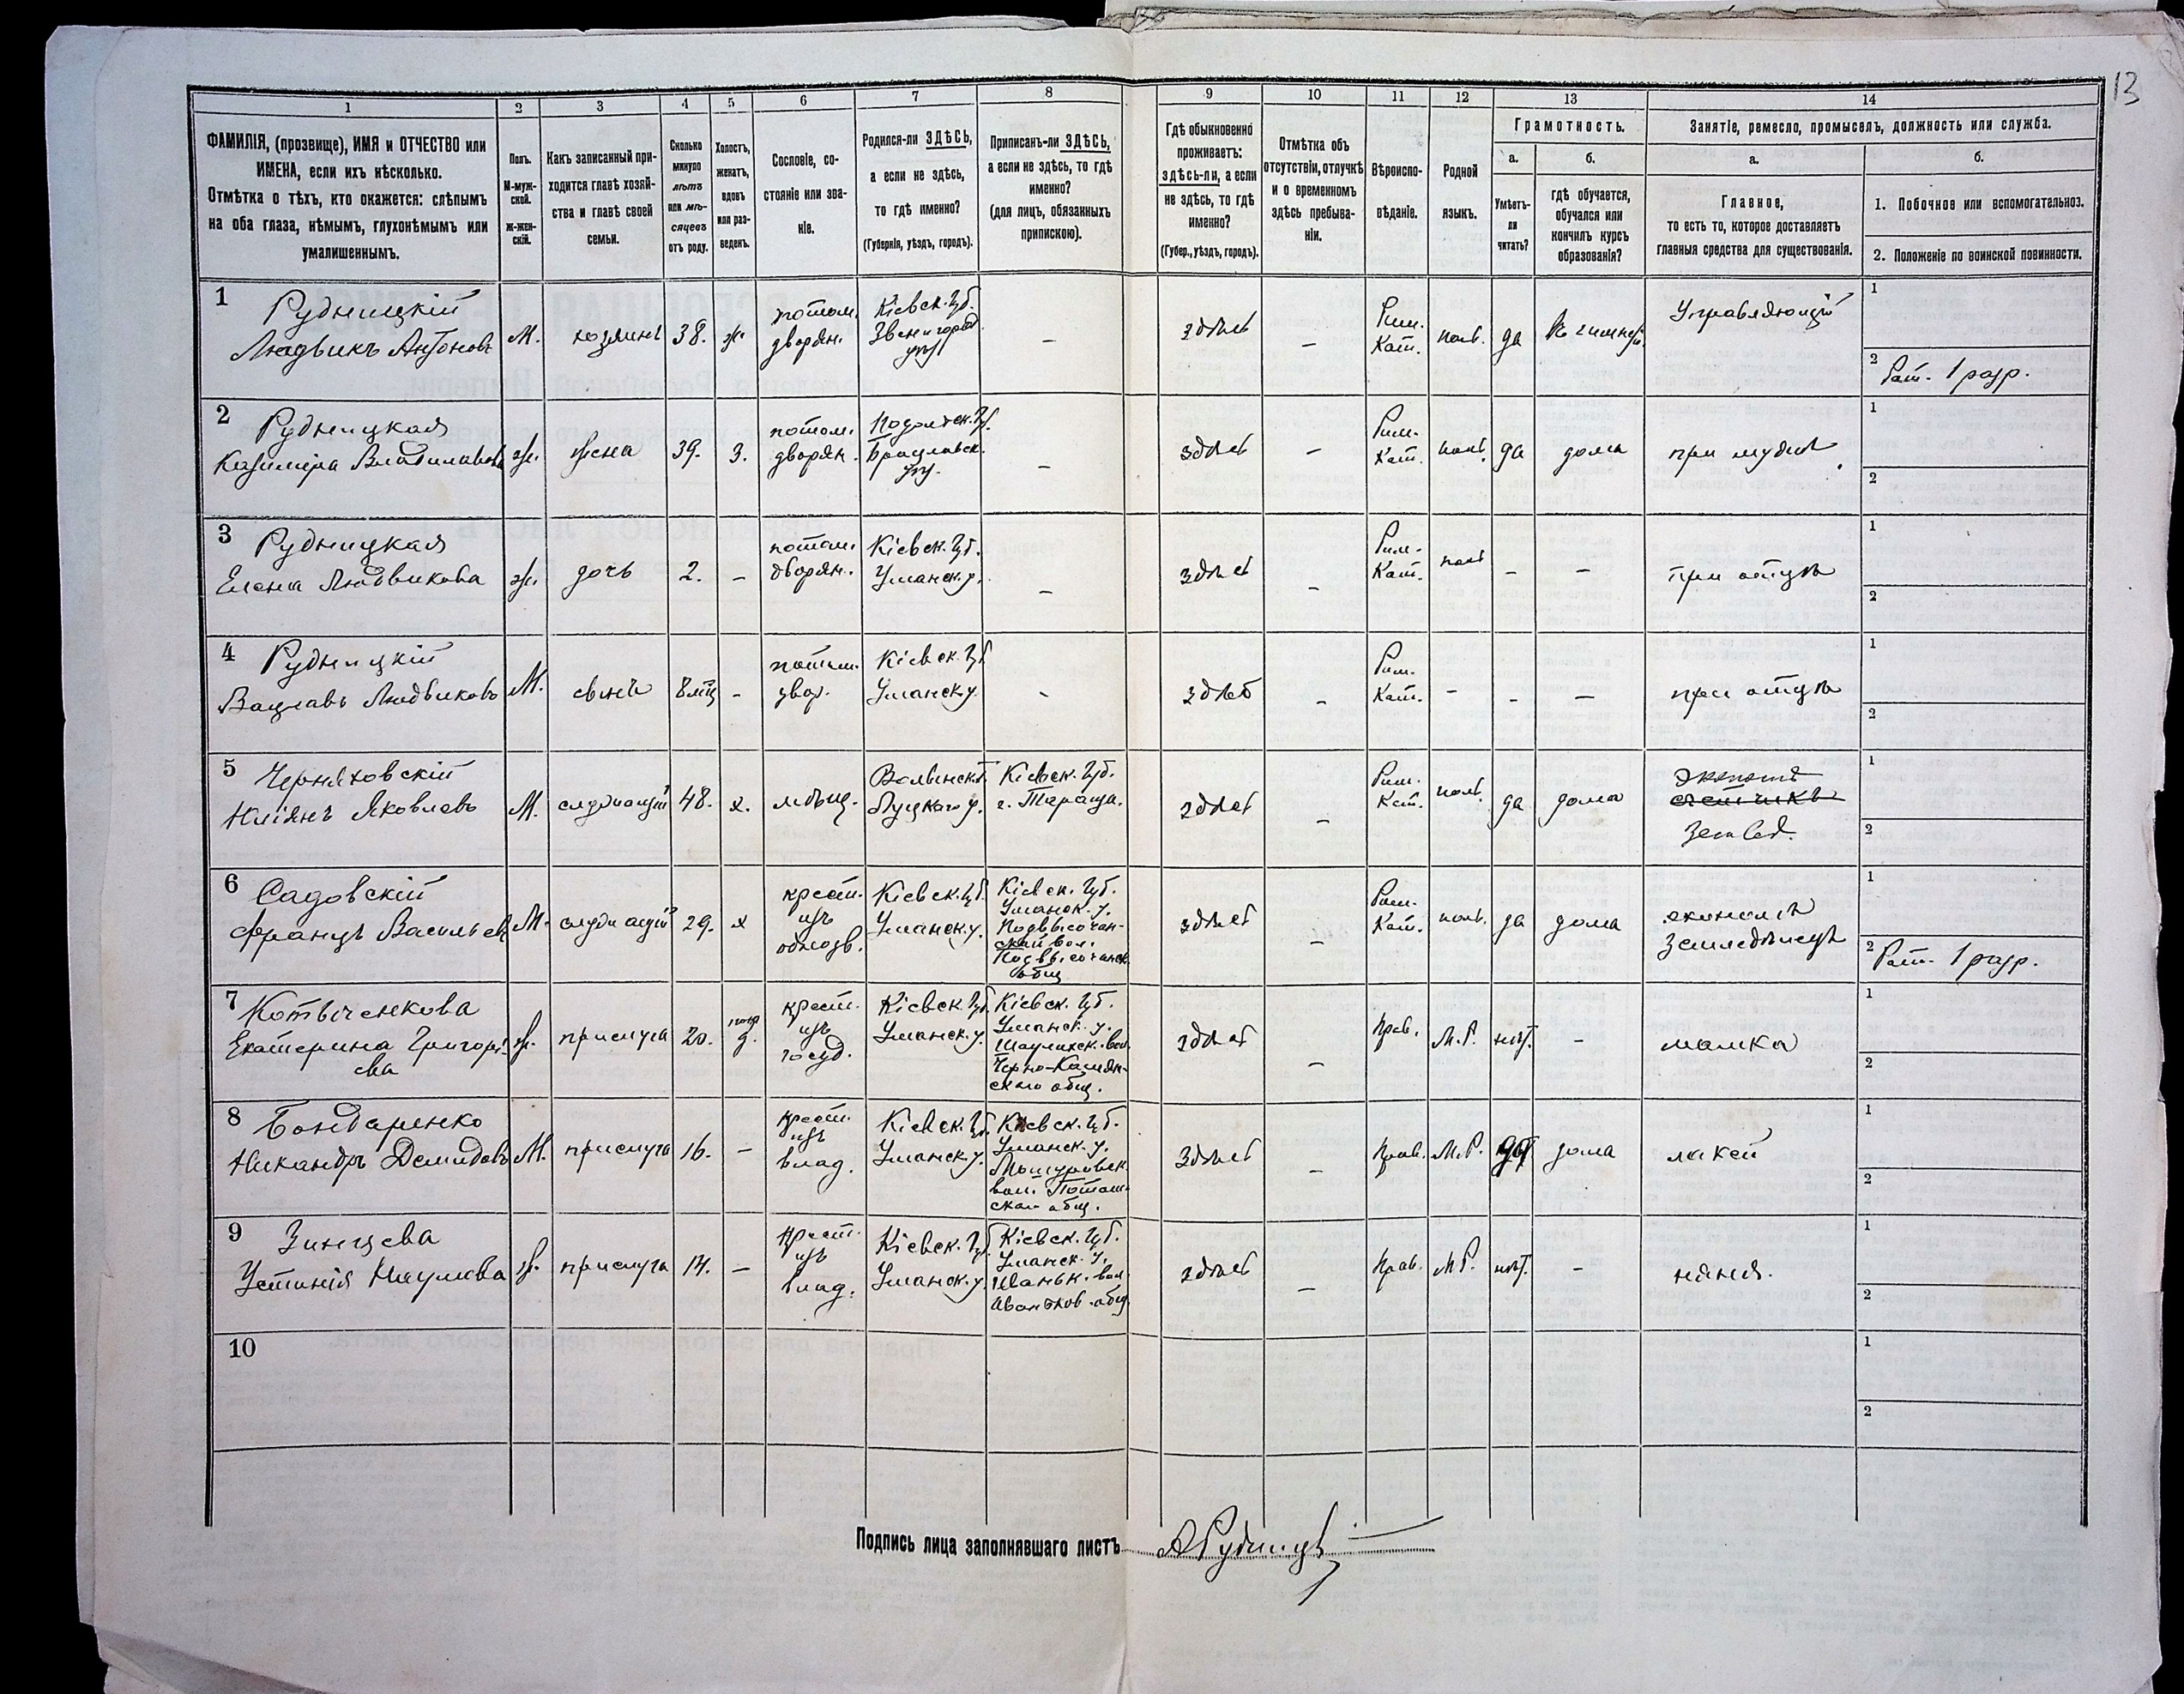 13
1 2 3 4 5 6 7 8 9 10 11 12 13 14
ФАМИЛІЯ, (прозвище), ИМЯ и ОТЧЕСТВО или
ИМЕНА, если ихъ нѣсколько.
Отмѣтка о тѣхъ, кто окажется: слѣпымъ
на оба глаза, нѣмымъ, глухонѣмымъ или
умалишеннымъ.
Полъ.
М-муж-
ской.
Ж-жен-
скій.
Какъ записанный при-
ходится главѣ хозяй-
ства и главѣ своей
семьи.
Сколько
минуло
лѣтъ
или мѣ-
сяцевъ
отъ роду.
Холостъ,
женатъ,
вдовъ
или раз-
веденъ.
Сословіе, со-
стояніе или зва-
ніе.
Родился-ли ЗДѢСЬ,
а если не здѣсь,
то гдѣ именно?
(Губернія, уѣздъ, городъ).
Приписанъ-ли ЗДѢСЬ,
а если не здѣсь, то гдѣ
именно?
(для лицъ, обязанныхъ
припискою).
Гдѣ обыкновенно
проживаетъ:
здѣсь-ли, а если
не здѣсь, то гдѣ
именно?
(Губер., уѣздъ, городъ).
Отмѣтка объ
отсутствіи, отлучкѣ
и о временномъ
здѣсь пребыва-
ніи.
Вѣроиспо-
вѣданіе.
Родной
языкъ.
Грамотность.
а.
Умѣетъ-
ли
читать?
б.
гдѣ обучается,
обучался или
кончилъ курсъ
образованія?
Занятіе, ремесло, промыселъ, должность или служба.
а.
Главное,
то есть то, которое доставляетъ
главныя средства для существованія.
б.
1. Побочное или вспомогательное.
2. Положеніе по воинской повинности.
1
Рудницкій
Людвикъ Антоновъ
М.
хозяинъ
38.
ж.
потом.
дворян.
Кіевск. Губ.
Звенигород.
уѣз.
—
здѣсь
—
Рим.
Кат.
пол.
да
Управляющій
1
2 Рат. 1 разр.
2
Рудницкая
Казиміра
ж.
жена
39.
З.
потом.
дворян.
Подольск. Губ.
Брацлавск.
уѣз.
—
здѣсь
—
Рим.
Кат.
пол.
да
дома
при мужѣ
1
2
3
Рудницкая
Елена Людвикова
ж.
дочь
2.
—
потом.
дворян.
Кіевск. Губ.
Уманск. у.
—
здѣсь
—
Рим.
Кат.
пол.
—
—
при отцѣ
1
2
4
Рудницкій
Вацлавъ Людвиковъ
М.
сынъ
8 мѣц
-
потом.
двор.
Кіевск. Губ.
Уманск. у.
-
здѣсь
-
Рим.
Кат.
-
-
—
при отцѣ
1
2
5
Черняховскій
Юліянъ Яковлевъ
М.
служащій
48.
х.
мѣщ.
Волынск. Г.
Луцкаго у.
Кіевск. Губ.
г. Тараща.
здѣсь
—
Рим.
Кат.
пол.
да
дома
Земвед.
1
2
6
Садовскій
Францъ Васильев
М.
служащій
29.
х
крест.
изъ
однодв.
Кіевск. Губ.
Уманск. у.
Кіевск. Губ.
Уманск. у.
Подвысочан-
ской вол.
Подвысочанск.
общ
здѣсь
—
Рим.
Кат.
пол.
да
дома
экономъ
Земледѣлецъ
1
2 Рат. 1 разр.
7
Котыченкова
Екатерина Григорі-
ева
ж.
прислуга
20.
крест.
изъ
госуд.
Кіевск. Губ.
Уманск. у.
Кіевск. Губ.
Уманск. у.
Шаулихск. вол.
Черно-Камян-
скаго общ.
здѣсь
—
Прав.
М.Р.
нѣт.
-
мамка
1
2
8
Бондаренко
Никандръ Демидовъ
М.
прислуга
16.
—
крест.
изъ
влад.
Кіевск. Губ.
Уманск. у.
Кіевск. Губ.
Уманск. у.
Машуровск.
вол. Поташ-
скаго общ.
здѣсь
—
Прав.
М.Р.
да
дома
лакей
1
2
9
Зинцева
Устинія Наумова
ж.
прислуга
14.
—
крест.
изъ
влад.
Кіевск. Губ.
Уманск. у.
Кіевск. Губ.
Уманск. у.
вол.
общ.
здѣсь
—
Прав.
М.Р.
нѣт.
-
няня.
1
2
10
1
2
Подпись лица заполнявшаго листъ